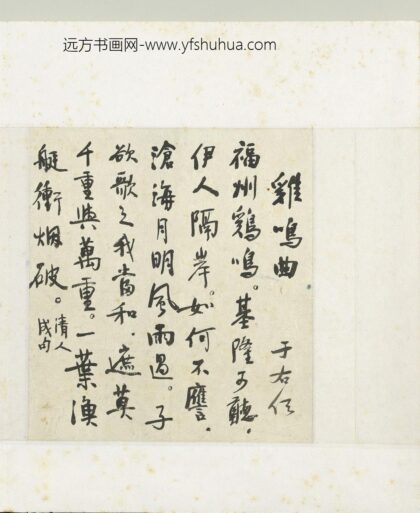 远方书画网-www.yfshuhua.com
雞鳴曲
于右任
福州鷄鳴。基隆可聽。
伊人隔岸。如何不譍。
滄海月明風雨過。子
欲歌之我當和。遮莫
千重與萬重。一葉漁
艇衝烟破。
清人
成句